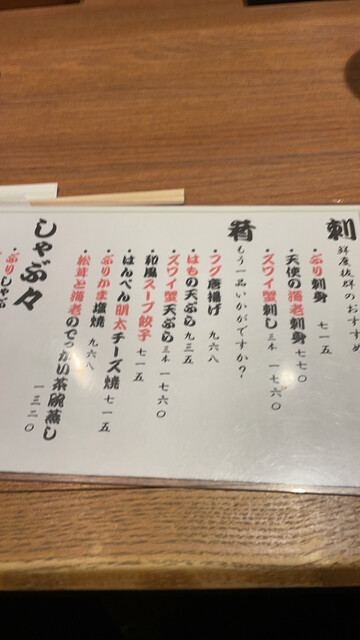 刺
鮮度抜群のおすすめ
・ぶり刺身 七一五
・天使の海老刺身 七七〇
・ズワイ蟹刺し 三本 一七六〇
肴
もう一品いかがですか?
・フグ唐揚げ 九六八
・はもの天ぷら 九三五
・ズワイ蟹天ぷら 三本 一七六〇
・和風スープ餃子 七一五
・はんぺん明太チーズ焼 七一五
・ぶりかま塩焼 九六八
・松茸と海老のでっかい茶碗蒸し 一三二〇
しゃぶ々
・ぶりしゃぶ